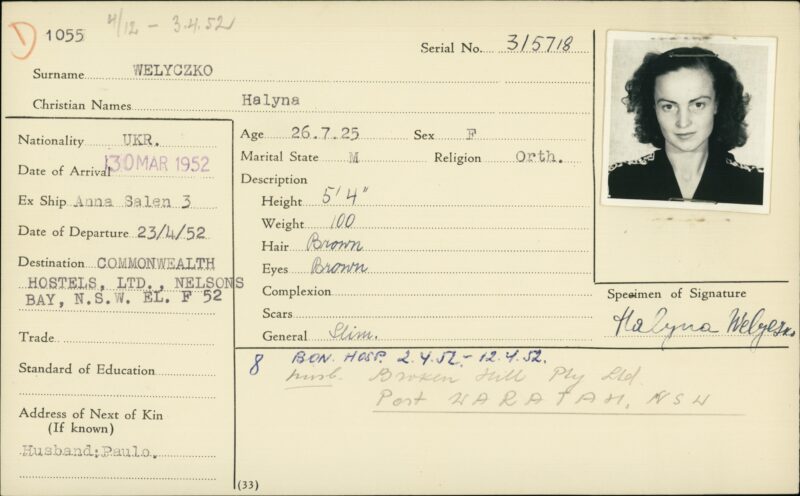 D 1055 4/12 - 3.4.52
Serial No. 315718
Surname WELYCZKO
Christian Names Halyna
Nationality UKR.
Date of Arrival 30 MAR 1952
Ex Ship Anna Salen 3
Date of Departure 23/4/52
Destination COMMONWEALTH
HOSTELS, LTD., NELSONS
BAY, N.S.W. EL. F 52
Trade
Standard of Education
Address of Next of Kin
(If known)
Husband;Paulo.
Age 26.7.25 Sex F
Marital State M Religion Orth.
Description
Height 5'4"
Weight 100
Hair Brown
Eyes Brown
Complexion
Scars
General Slim.
Specimen of Signature
Halyna Welyczko
8 BON. HOSP. 2.4.52 - 12.4.52.
husb. Broken Hill Pty Ltd.
Port WARATAH, NSW
(33)